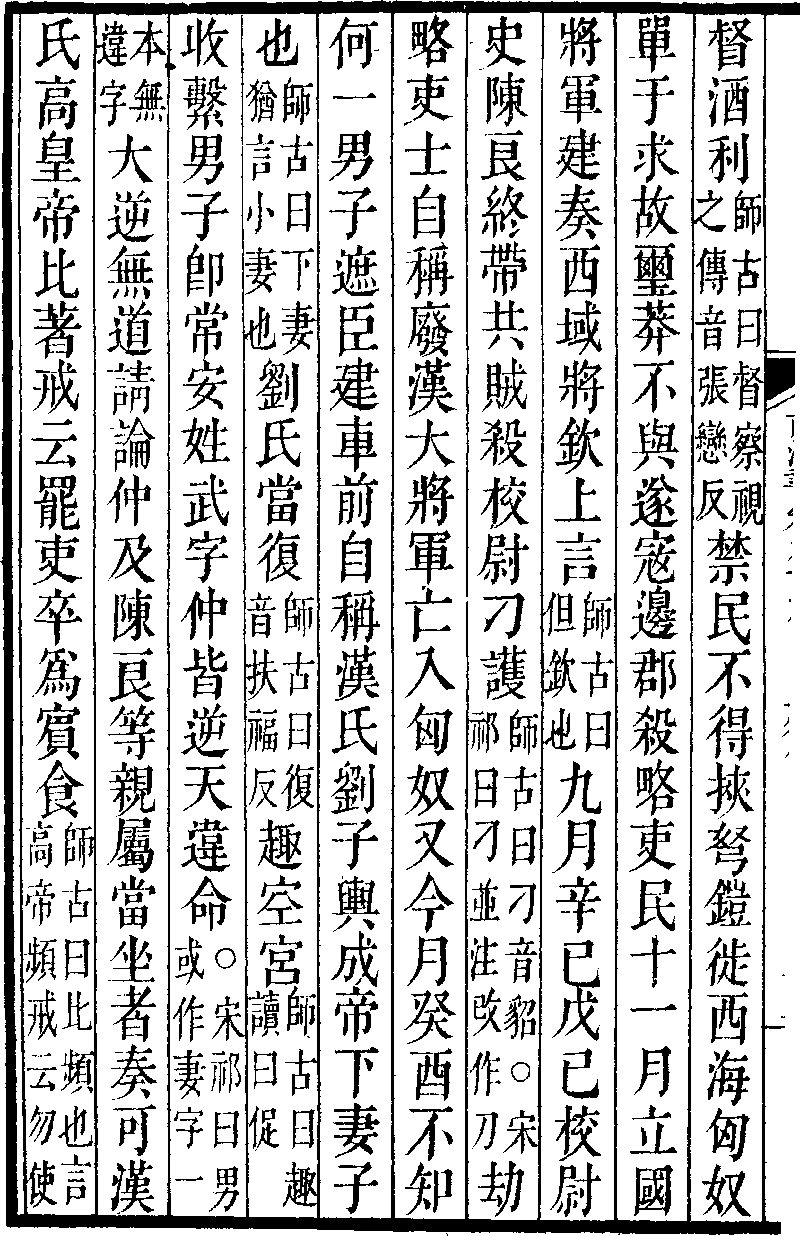 督酒利師古曰督察視之傳音張戀反禁民不得挾弩鎧徙西海匈奴
單于求故璽莽不與遂寇邊郡殺略吏民十一月立國
將軍建奏西域將欽上言師古曰但欽也九月辛巳戊已校尉
史陳良終帶共賊殺校尉刁護師古曰刁音貂○宋祁曰刁並注改作刀劫
略吏士自稱廢漢大將軍亡入匈奴又今月癸酉不知
何一男子遮臣建車前自稱漢氏劉子輿成帝下妻子
也師古曰下妻猶言小妻也劉氏當復師古曰復音扶福反趣空宮師古曰趣讀曰促
收繫男子卽常安姓武字仲皆逆天違命○宋祁曰男或作妻字一
本無違字大逆無道請論仲及陳良等親屬當坐者奏可漢
氏高皇帝比著戒云罷吏卒爲賓食師古曰比頻也言高帝頻戒云勿使